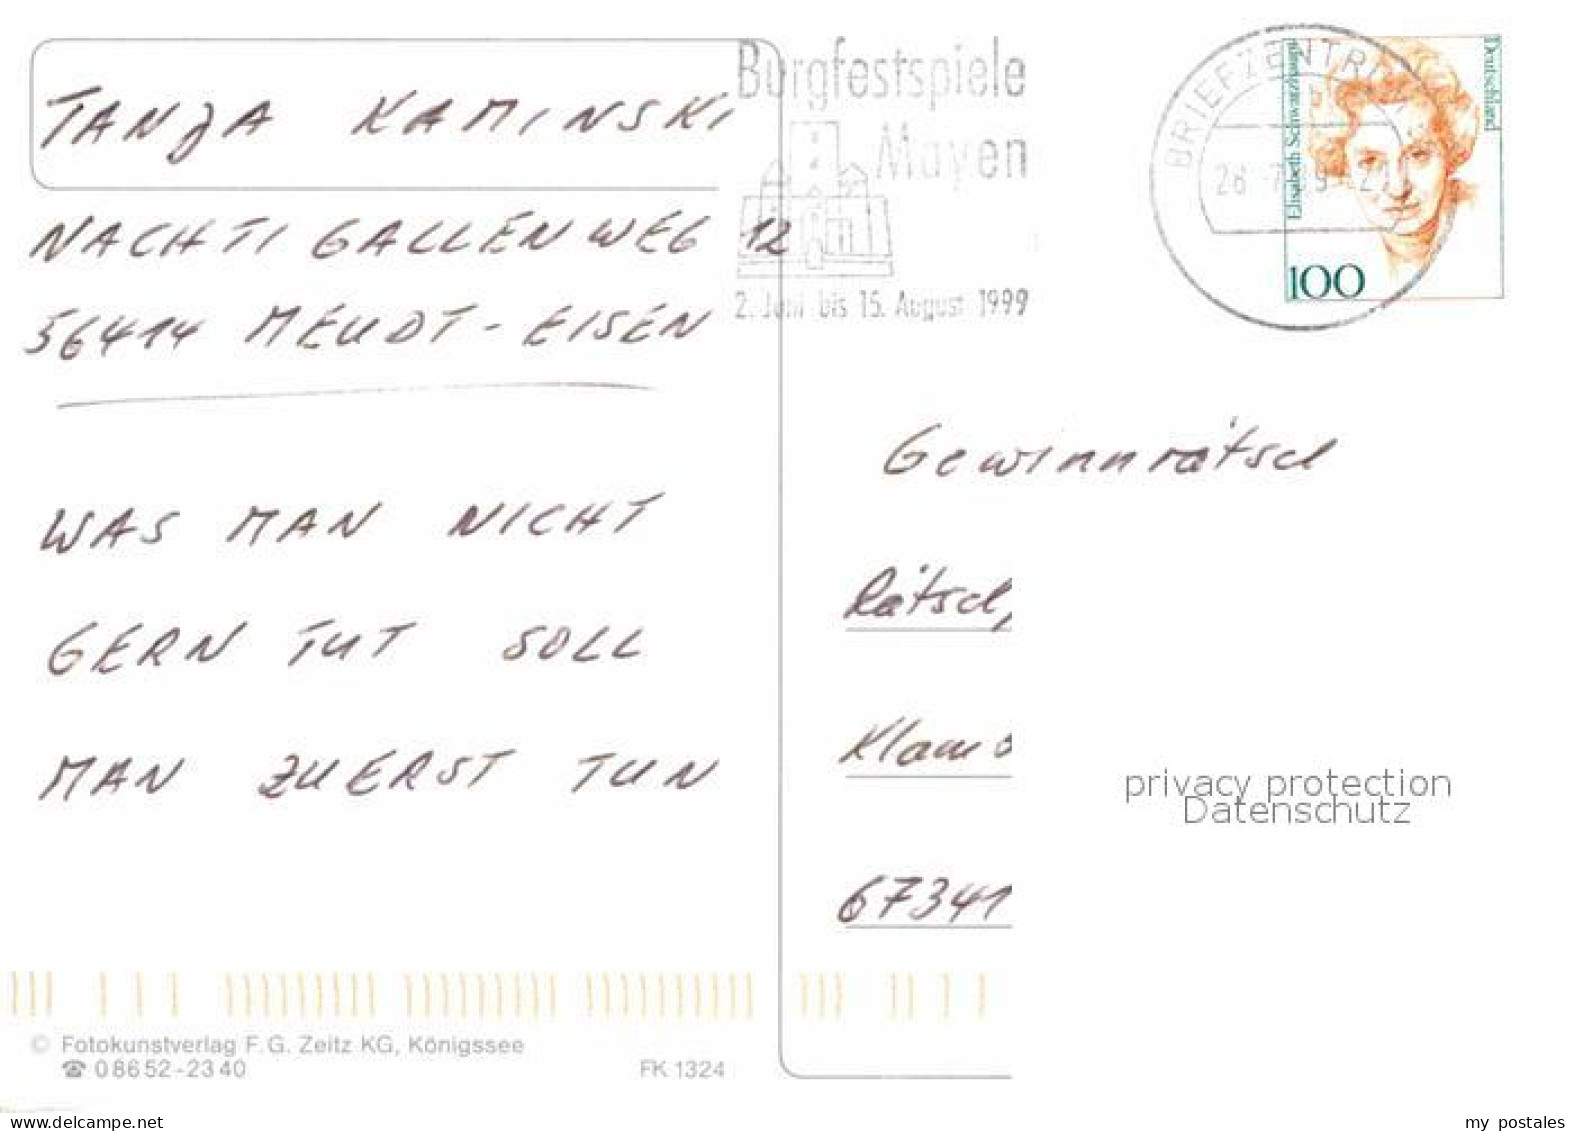 TANJA KAMINSKI
NACHTIGALLENWEG 12
56414 MEUDT-EISEN
WAS MAN NICHT
GERN TUT SOLL
MAN ZUERST TUN
© Fotokunstverlag F.G. Zeitz KG, Königssee
☎ 08652-2340
FK 1324
Burgfestspiele
Mayen
2. Juni bis 15. August 1999
BRIEFZENTRUM
Deutschland
Elisabeth Schwarzhaupt
100
Gewinnrätsel
Rätsel,
Klam
67341
privacy protection
Datenschutz
www.delcampe.net
my_postales